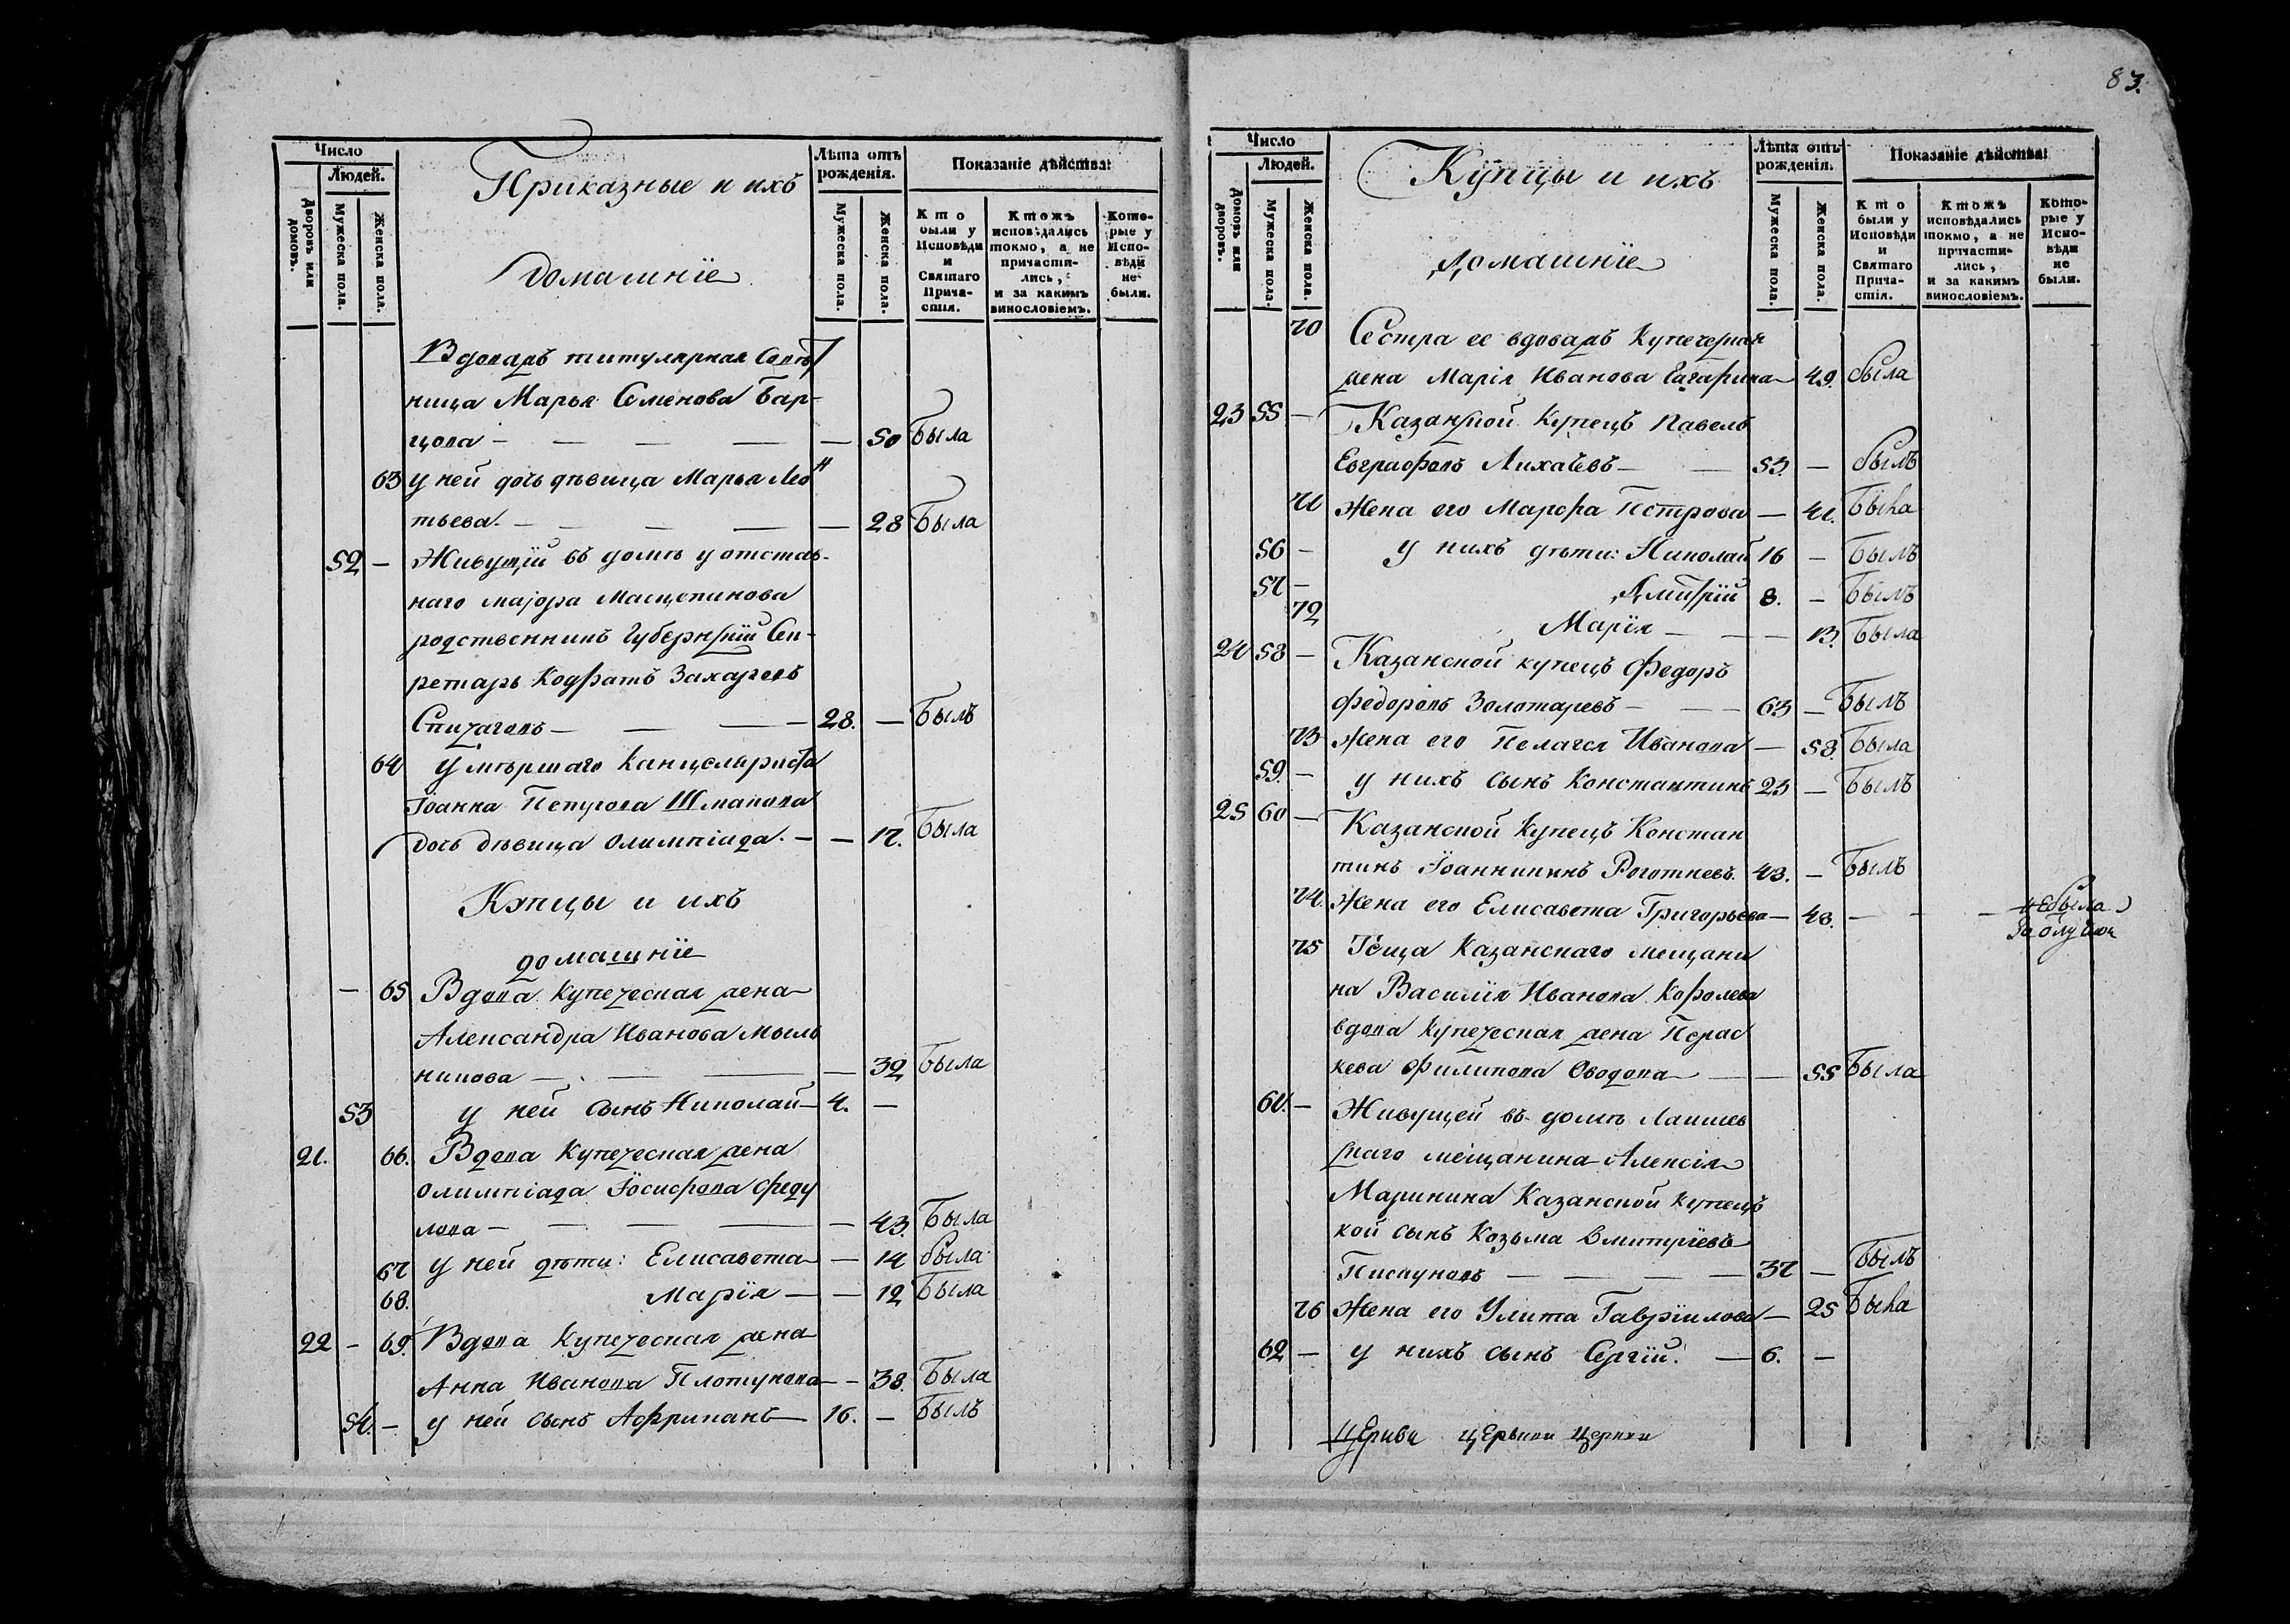 83.
Число
Людей.
Дворовъ или домовъ.
Мужеска пола.
Женска пола.
Приказные и ихъ
домашнїе
Лѣта отъ рожденія.
Мужеска пола.
Женска пола.
Показаніе дѣйства:
Кто были у Исповѣди и Святаго Причастія.
Ктожъ исповѣдались токмо, а не причастились, и за какимъ винословіемъ.
Которые у Исповѣди не были.
Вдовапъ титулярная Совѣт
ница Марья Семенова Бар-
цова — — — — — 50 Была
63 у ней дочь дѣвица Марья Лео
тьева. — — — — — 28 Была
52 — Живущїй въ домѣ у отстав-
наго маіора Масцепинова
родственникъ Губернскїй Сек-
ретарь Кодратъ Захаровъ
28. — Былъ
64 Умѣршаго Канцеляриста
Іоанна Петрова Шманова
дочь дѣвица Олимпіада. — — 17. Была
Купцы и ихъ
домашнїе
— 65 Вдова купеческая жена
Александра Иванова Мыль
никова — — — — 32 Была
53 у ней сынъ Николай — 4. —
21. 66. Вдова купеческая жена
Олимпіада Їосифова Феду
лова — — — — — 43. Была
67 у ней дѣти: Елисавета — 14 была
68. Марїя — — 12 Была
22 — 69. Вдова купеческая жена
Анна Иванова Плотунова — — 38. Была
54. — у ней сынъ Африканъ — 16. — Былъ
Число
Людей.
Домовъ или дворовъ.
Мужеска пола.
Женска пола.
Купцы и ихъ
домашнїе
Лѣта отъ рожденія.
Мужеска пола.
Женска пола.
Показаніе дѣйства:
Кто были у Исповѣди и Святаго Причастія.
Ктожъ исповѣдались токмо, а не причастились, и за какимъ винословіемъ.
Которые у Исповѣди не были.
70 Сестра ее вдовапъ купеческая
жена Марія Иванова Гагарина — 49. была
23 55 — Казанской купецъ Павелъ
Евграфовъ Лихачевъ — — 53. — былъ
71 Жена его Марфа Петрова — 41. Была
56 — у нихъ дѣти: Николай 16 — Былъ
57 — Дмитрїй 8. — Былъ
72 Марїя — — — 13. Была
24 58 — Казанской купецъ Федоръ
Федоровъ Золотаревъ — — 63 — Былъ
73 Жена его Пелагея Иванова — 58. Была
59. — у нихъ сынъ Константинъ 23 — Былъ
25 60 — Казанской Купецъ Констан
тинъ Їоанникинъ Роготневъ. 43. — Былъ
74. Жена его Елисавета Григорьева — 48. — — — небыла
За отлучкои
75 Теща Казанскаго мещани
на Василїя Иванова Королева
вдова купеческая жена Парас
кева Филипова Оводова — — 55 Была
61. — Живущей въ домѣ Лаишев
скаго мещанина Алексія
Маринина Казанской купец
кой сынъ Козьма Дмитрїевъ
Пискуновъ — — — — 37 — Былъ
76 Жена его Улита Гаврїилова — 25 Была
62 — у нихъ сынъ Сергїй. — 6. —
церкви церькви церкви